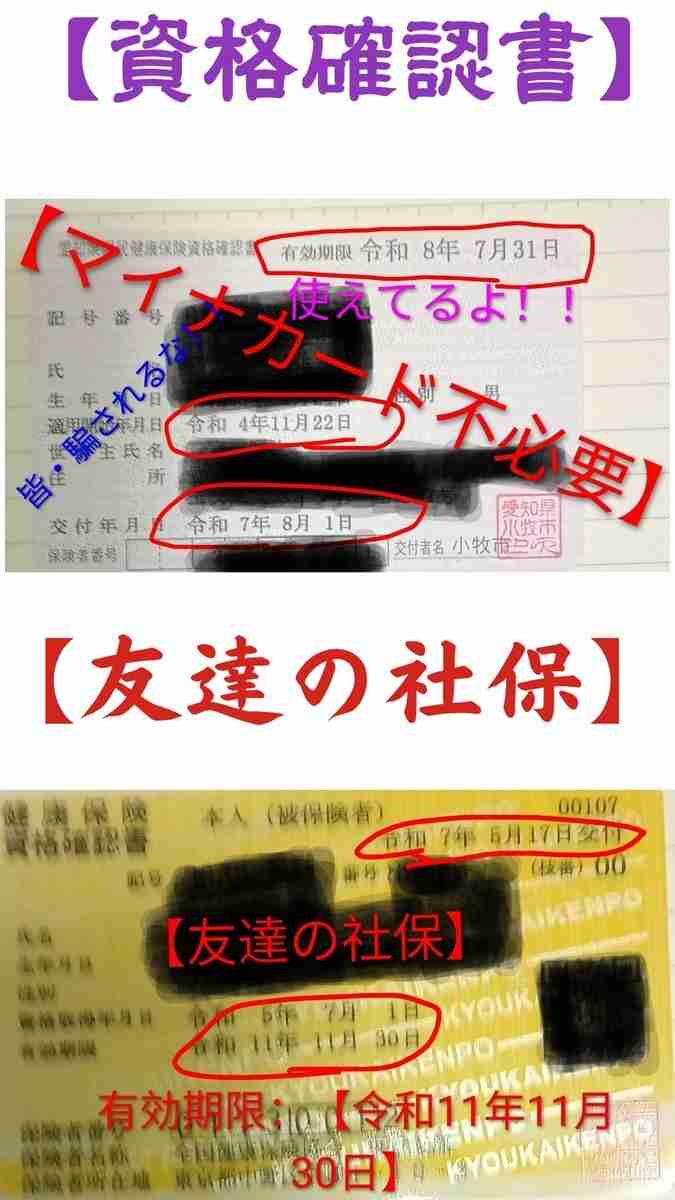 【資格確認書】
愛知県国民健康保険資格確認書
有効期限 令和 8年 7月31日
【マイナカード不必要】
使えてるよ！！
皆・騙されるな！！
記号番号
氏
生年 日
性別 男
適用開始年月日 令和 4年11月22日
世 主氏名
住 所
交付年月日 令和 7年 8月 1日
保険者番号
交付者名 小牧市
愛知県
小牧市
【友達の社保】
健康保険
資格確認書
本人（被保険者）
00107
令和 7年 6月17日交付
記号
番号
(枝番) 00
【友達の社保】
氏名
生年月日
性別
資格取得年月日 令和 5年 7月 1日
有効期限 令和 11年 11月 30日
KYOUKAIKENPO
有効期限；【令和11年11月
30日】
保険者番号
保険者名称 全国健康保険
保険者所在地 東京都中野
KYOUKAIKENPO